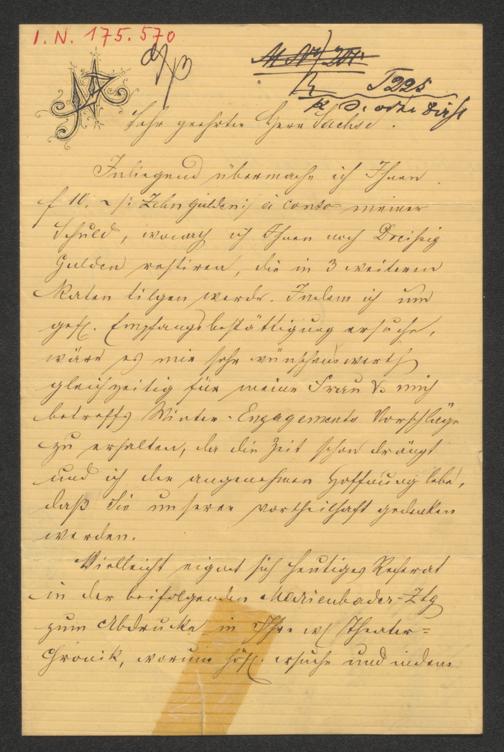 I.N. 175.570
Sehr geehrter Herr Sachse!
Inliegend übermache ich Ihnen
f 10. ~ /: Zehn Gulden :/ à conto meiner
Schuld, wonach ich Ihnen noch Dreißig
Gulden restiere, die in 3 weiteren
Raten tilgen werde. Indem ich um
gefl. Empfangsbestättigung ersuche,
wäre es mir sehr wünschenswerth
gleichzeitig für meine Frau & mich
betreffs Winter-Engagements Vorschläge
zu erhalten, da die Zeit schon drängt
und ich der angenehmen Hoffnung lebe,
daß Sie unserer vortheilhaft gedenken
werden.
Vielleicht eignet sich heutiges Referat
in der beifolgenden Marienbader-Ztg
zum Abdrucke in Ihre Theater=
Chronik, worum höfl. ersuche und indem